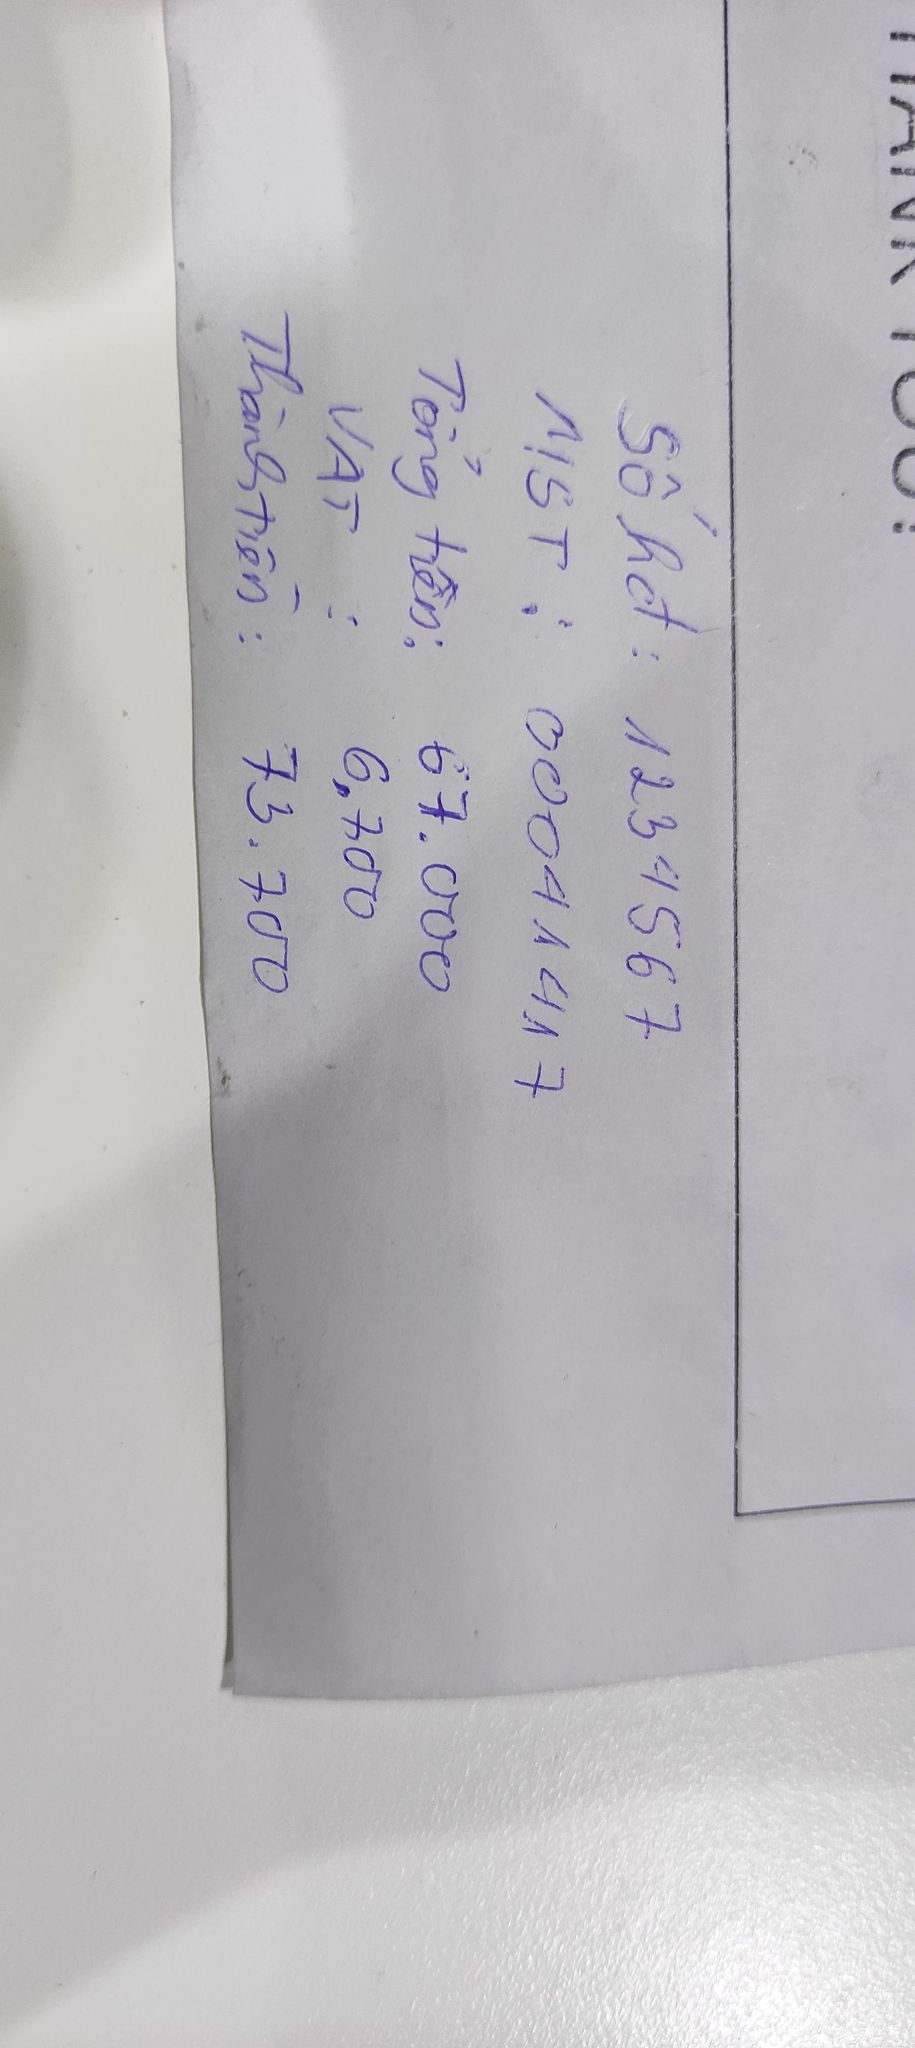 THANK YOU!
Số hđ: 1234567
MST: 00041417
Tổng tiền: 67.000
VAT: 6.700
Thành tiền: 73.700